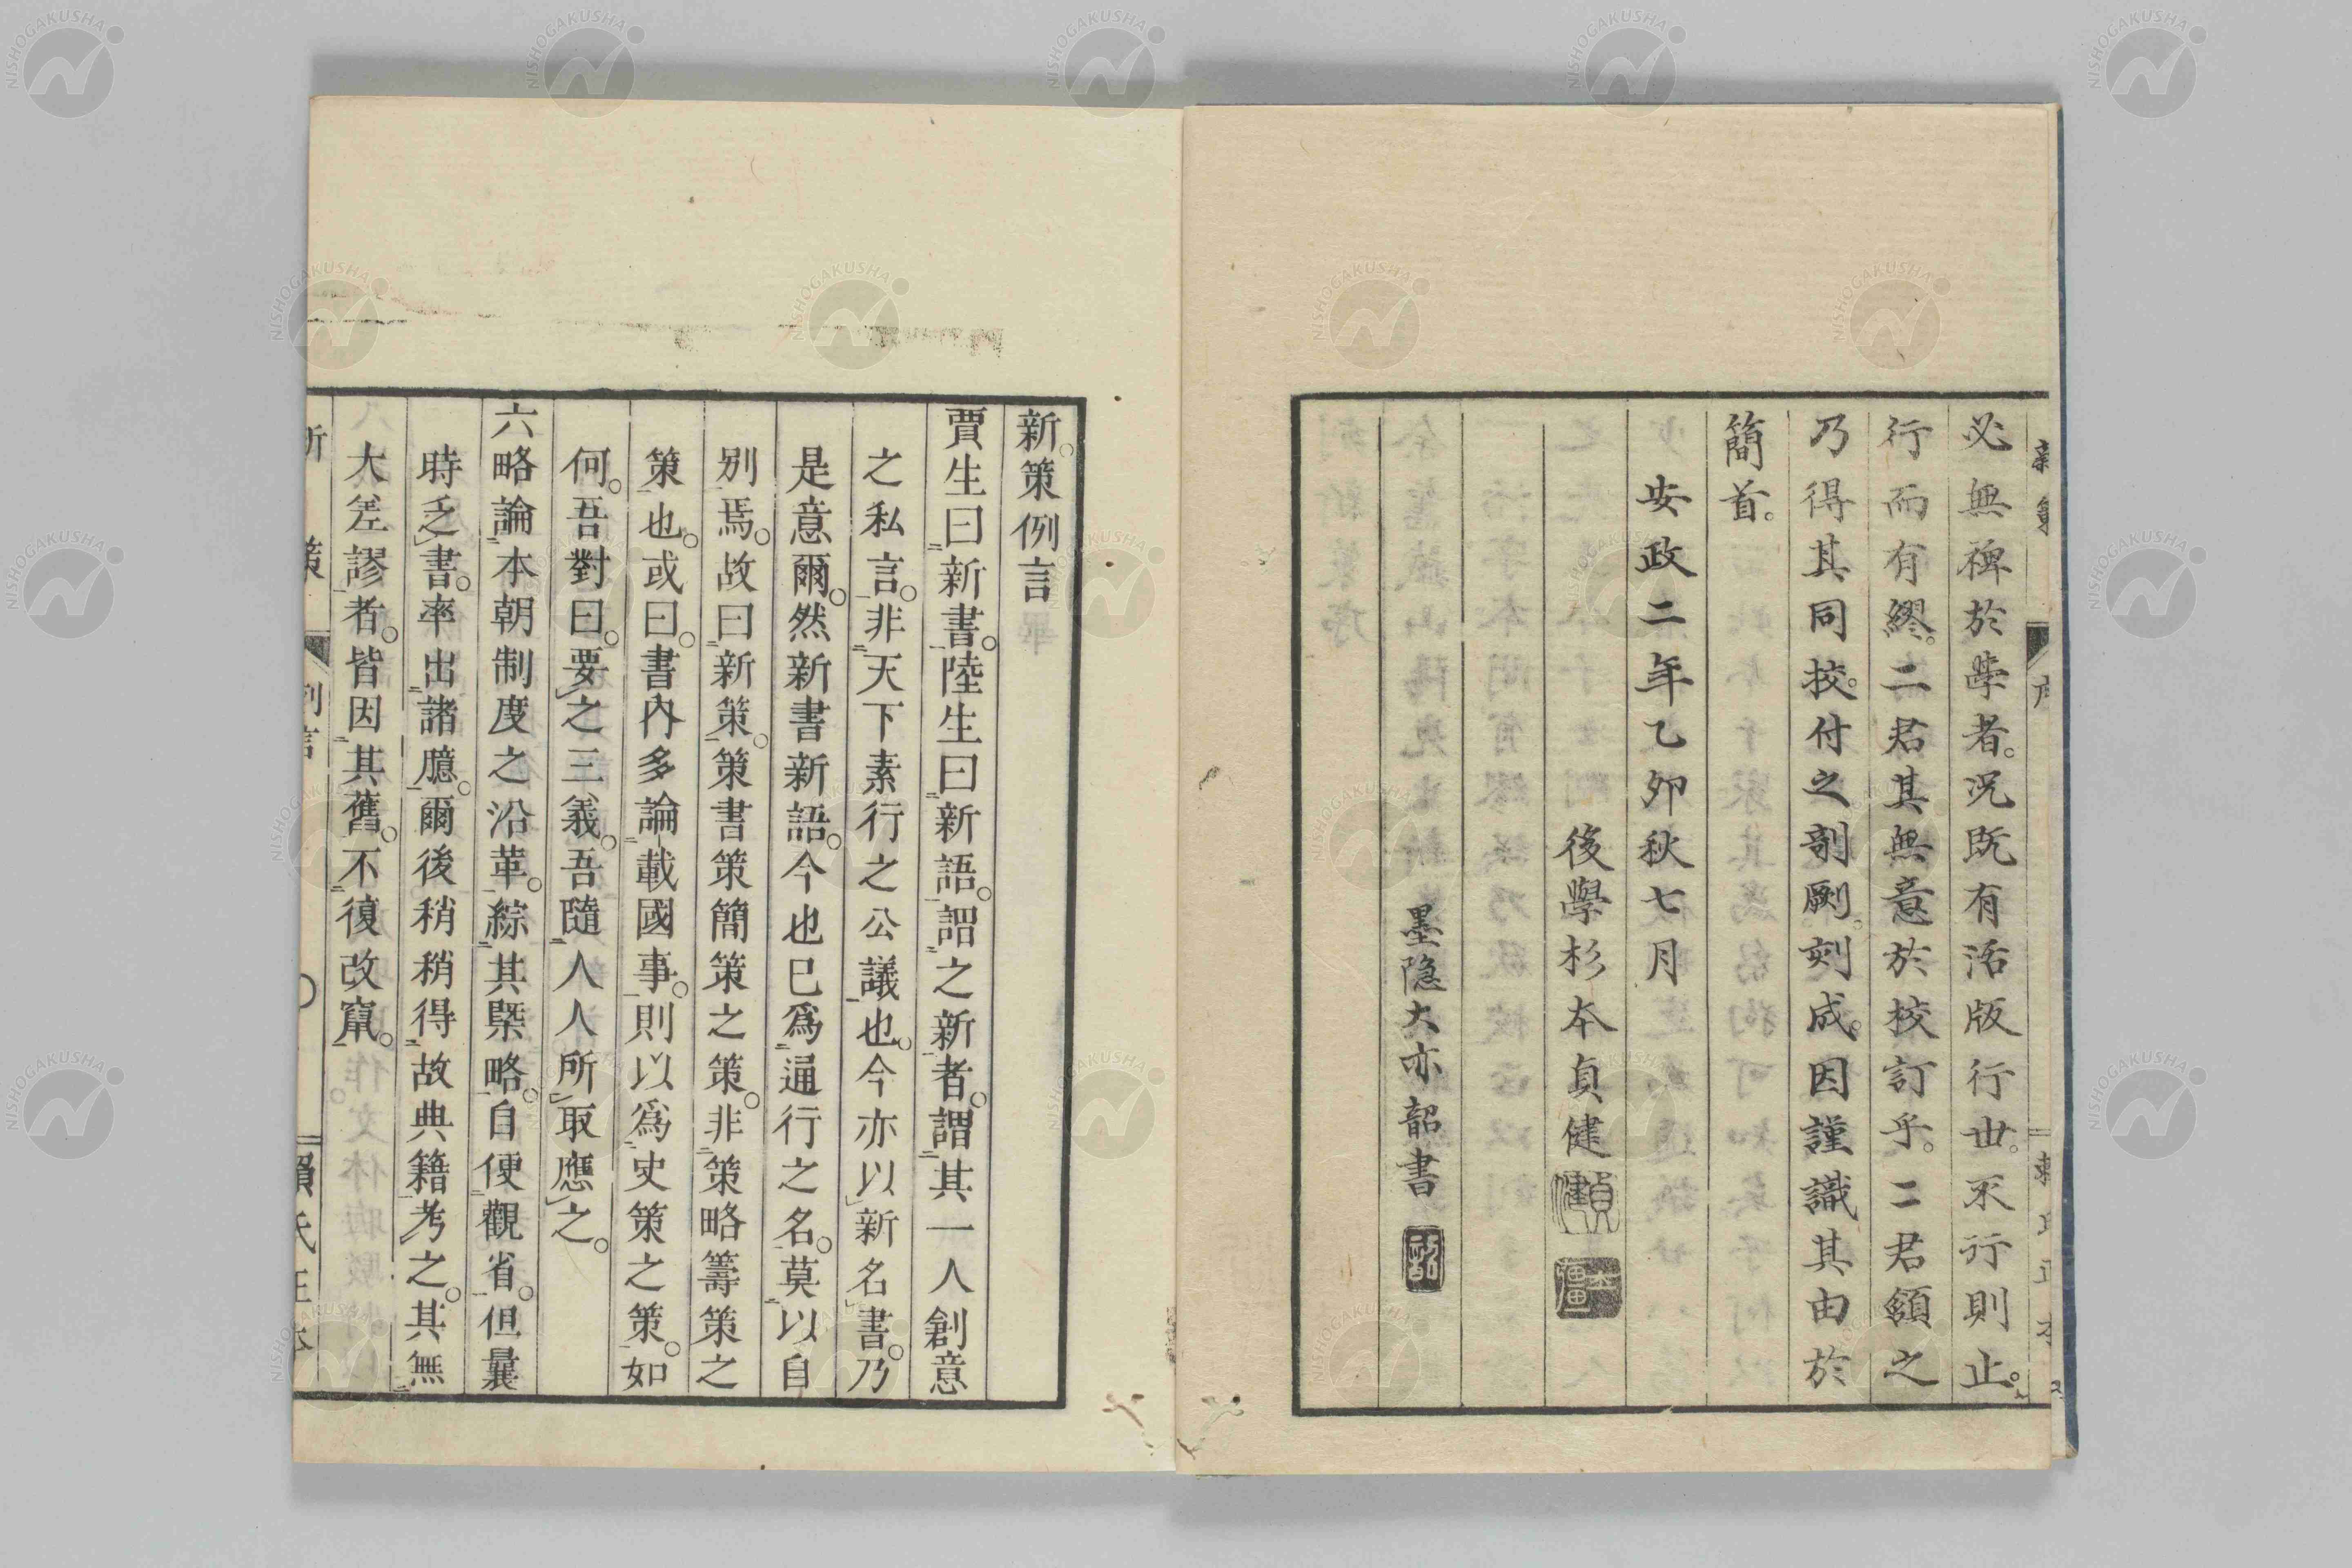 必無裨於學者。況既有活版行世。不行則止。
行而有繆。二君其無意於校訂乎。二君頷之
乃得其同挍。付之剞劂。刻成。因謹識其由於
簡首。
安政二年乙卯秋七月
後學杉本貞健
墨隐大亦韶書
新策例言
賈生曰新書。陸生曰新語。詔之新者。謂其一人創意
之私言。非天下素行之公議也。今亦以新名書。乃
是意爾。然新書新語。今也已爲通行之名。莫以自
別焉。故曰新策。策書策簡策之策。非策略籌策之
策也。或曰。書內多論載國事。則以爲史策之策。如
何。吾對曰。要之三義。吾隨人人所取應之。
六略論本朝制度之沿革。綜其槩略。自便觀省。但曩
時乏書。率出諸臆。爾後稍稍得故典籍考之。其無
大差謬者。皆因其舊。不復改竄。
NISHOGAKUSHA